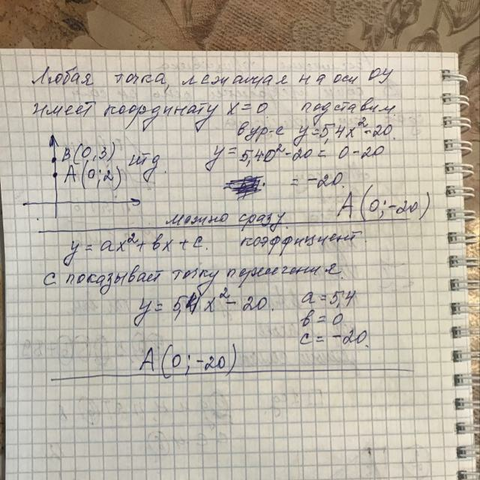 Любая точка, лежащая на оси OY
имеет координату x=0 подставим
в ур-е y=5,4x²-20.
B(0,3) итд. y=5,40²-20= 0-20
A(0;2)
= -20.
A(0;-20)
можно сразу.
y=ax²+bx+c. коэффициент.
c показывает точку пересечения.
y=5,4x²-20. a=5,4
b=0
c=-20.
A(0;-20)